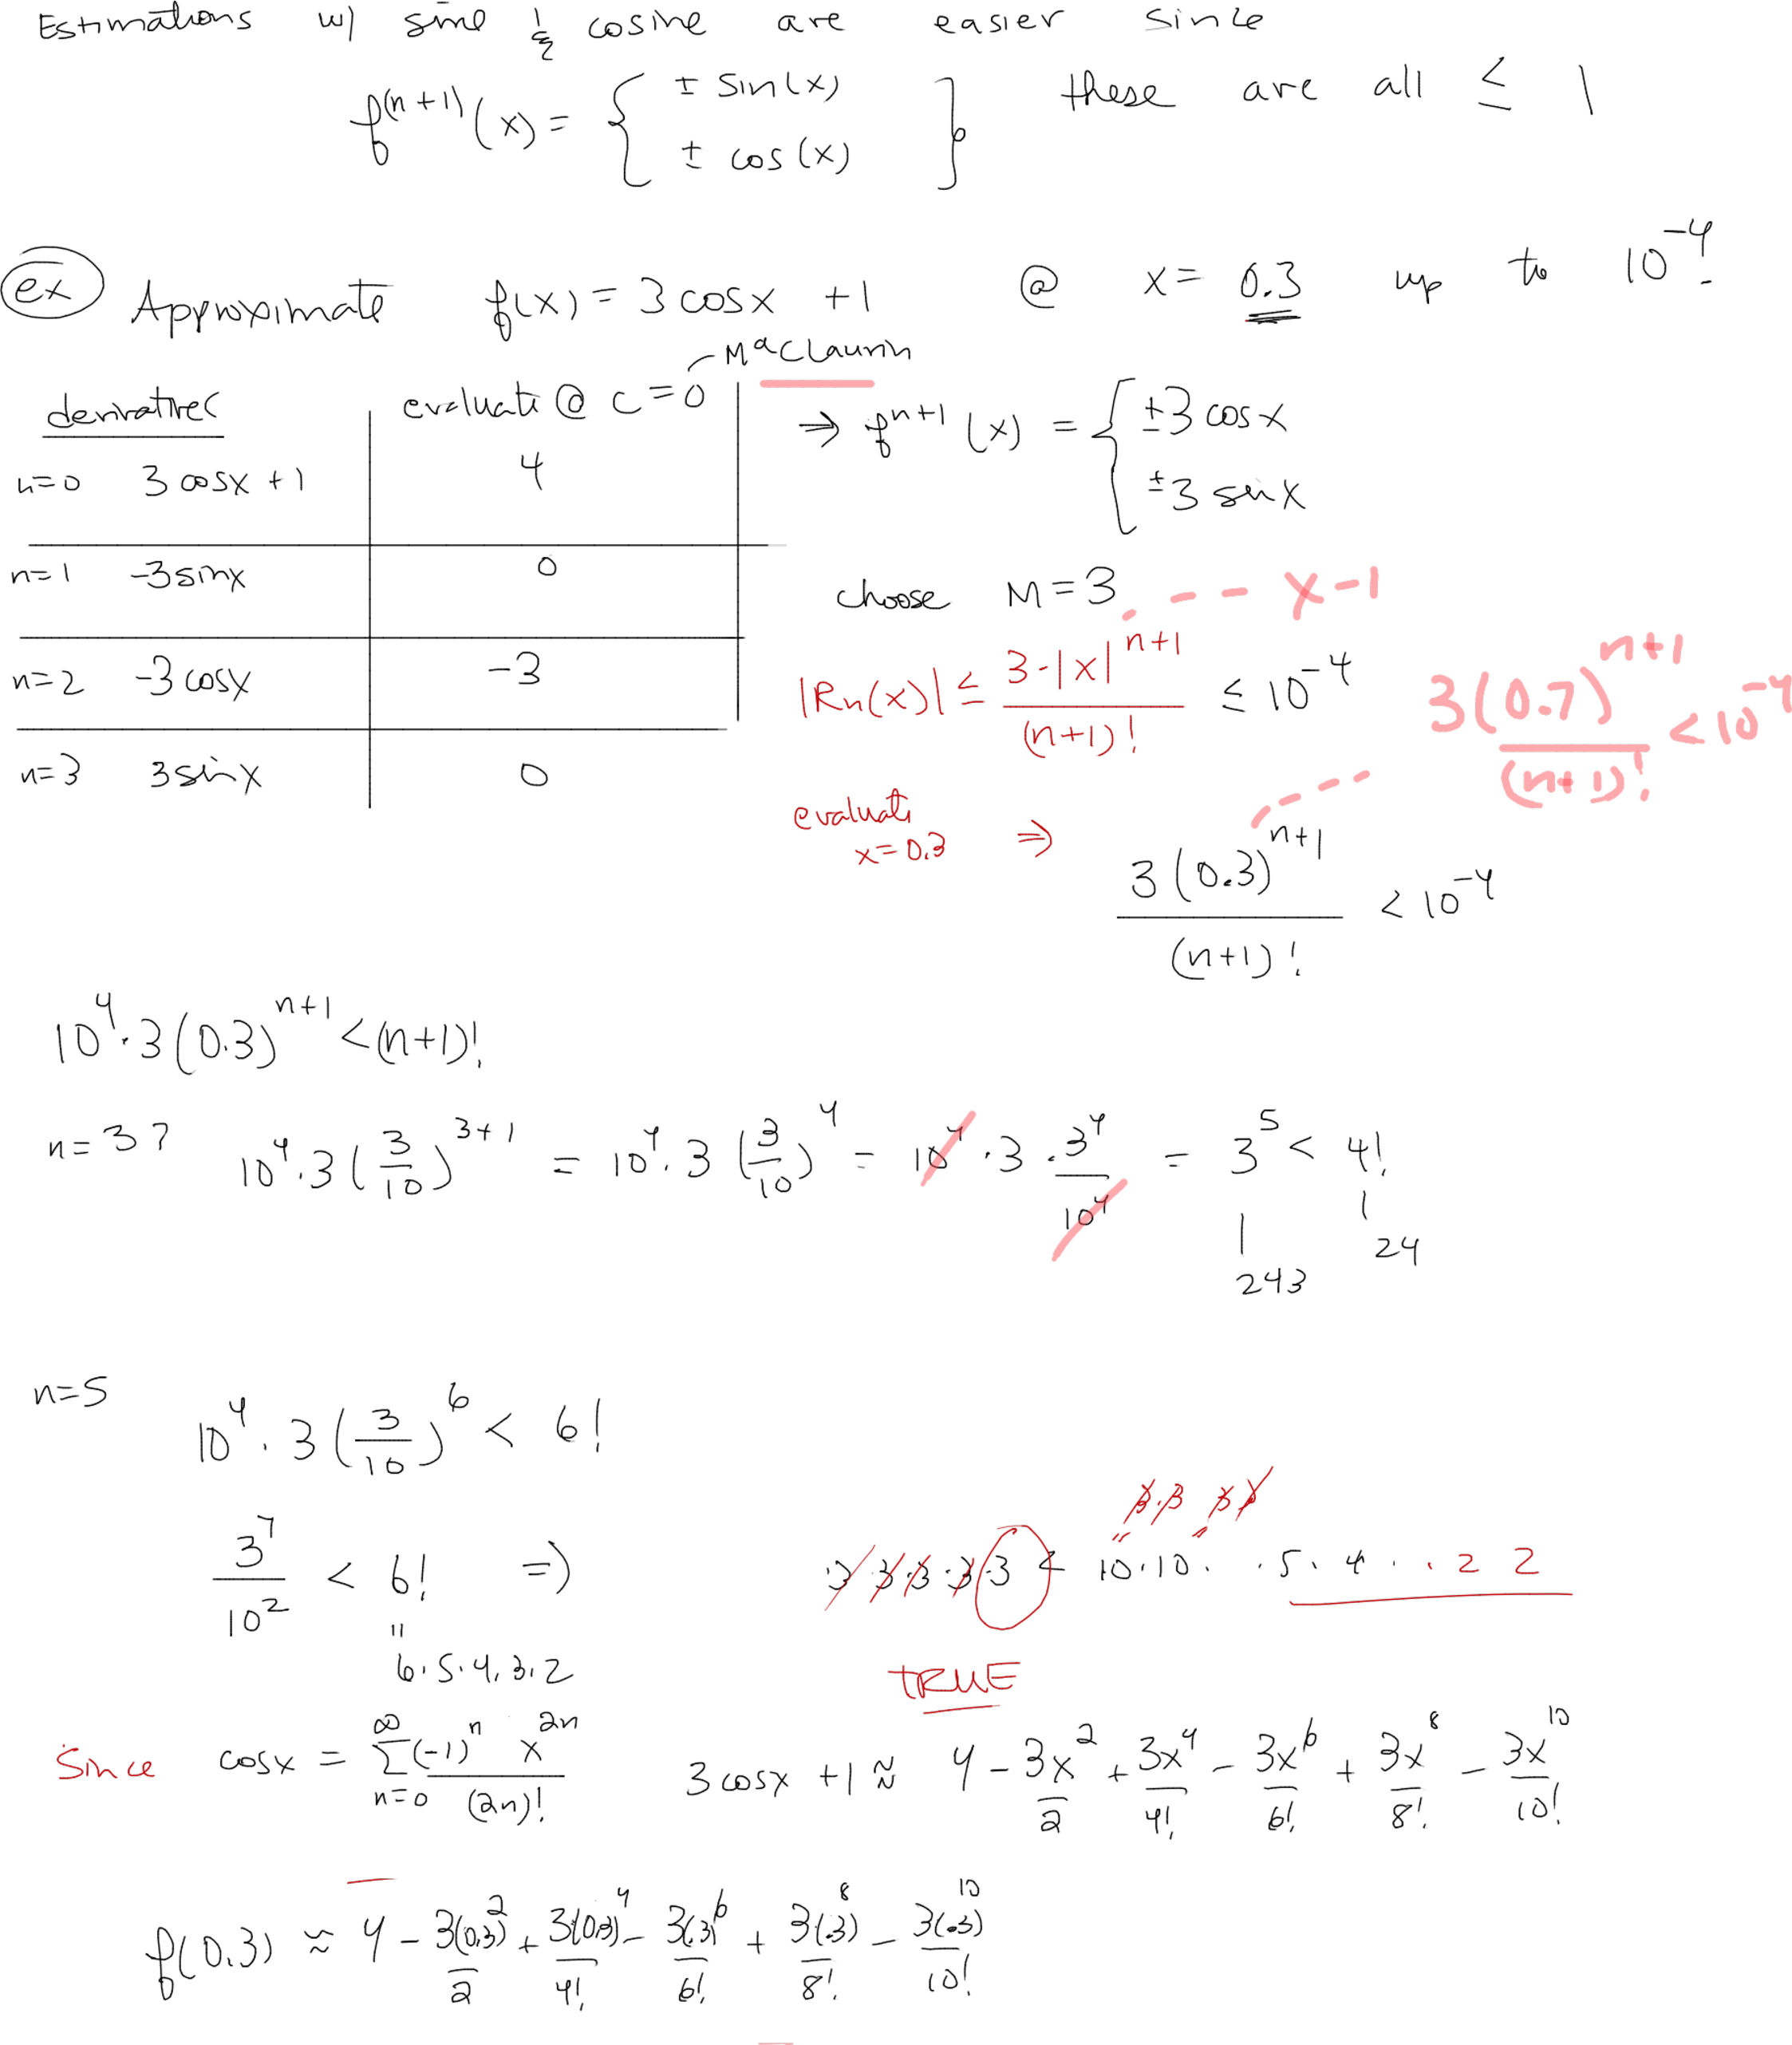 Estimations w/ sine & cosine are easier since
f^(n+1)(x) = { ± sin(x) ± cos(x) } these are all ≤ 1
ex Approximate f(x) = 3 cosx + 1 @ x = 0.3 up to 10^-4.
MaClaurin
derivatives evaluate @ c = 0
n=0 3 cosx + 1 4
n=1 -3 sinx 0
n=2 -3 cosx -3
n=3 3 sinx 0
⇒ f^n+1 (x) = { ±3 cosx ±3 sinx
choose M = 3 x-1
|Rn(x)| ≤ 3·|x|^n+1 / (n+1)! ≤ 10^-4
3(0.7)^n+1 / (n+1)! < 10^-4
evaluate x=0.3 ⇒ 3(0.3)^n+1 / (n+1)! < 10^-4
10^4·3(0.3)^n+1 < (n+1)!
n=3? 10^4·3(3/10)^3+1 = 10^4·3(3/10)^4 = 10^4·3·3^4/10^4 = 3^5 < 4!
243 24
n=5 10^4·3(3/10)^6 < 6!
3^7/10^2 < 6! ⇒ 3·3·3·3·3 < 10·10··5·4··2 2
3·3 3·3
" 6·5·4·3·2
TRUE
Since cosx = ∞ Σ n=0 (-1)^n x^2n / (2n)! 3 cosx + 1 ≈ 4 - 3x^2/2 + 3x^4/4! - 3x^6/6! + 3x^8/8! - 3x^10/10!
f(0.3) ≈ 4 - 3(0.3)^2/2 + 3(0.3)^4/4! - 3(.3)^6/6! + 3(.3)^8/8! - 3(.3)^10/10!